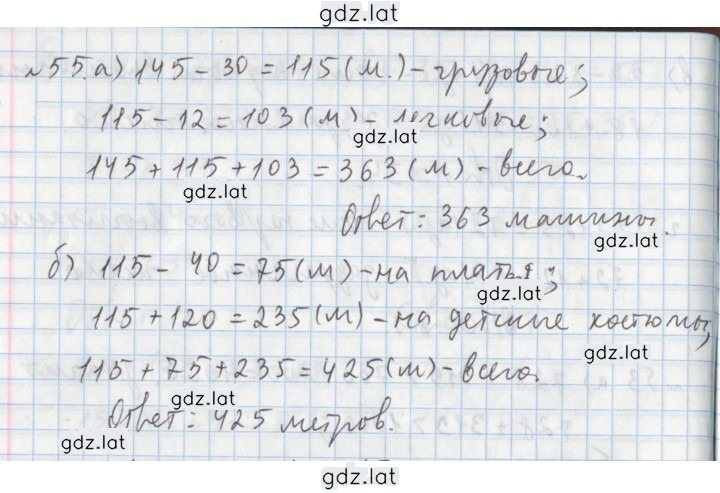 gdz.lat
№55.а) 145 - 30 = 115 (м.) - грузовые;
115 - 12 = 103 (м) - легковые;
gdz.lat
145 + 115 + 103 = 363 (м) - всего.
gdz.lat
Ответ: 363 машины.
gdz.lat
б) 115 - 40 = 75 (м) - на платья;
gdz.lat
115 + 120 = 235 (м) - на детские костюмы;
gdz.lat
115 + 75 + 235 = 425 (м) - всего.
gdz.lat
Ответ: 425 метров.
gdz.lat
gdz.lat